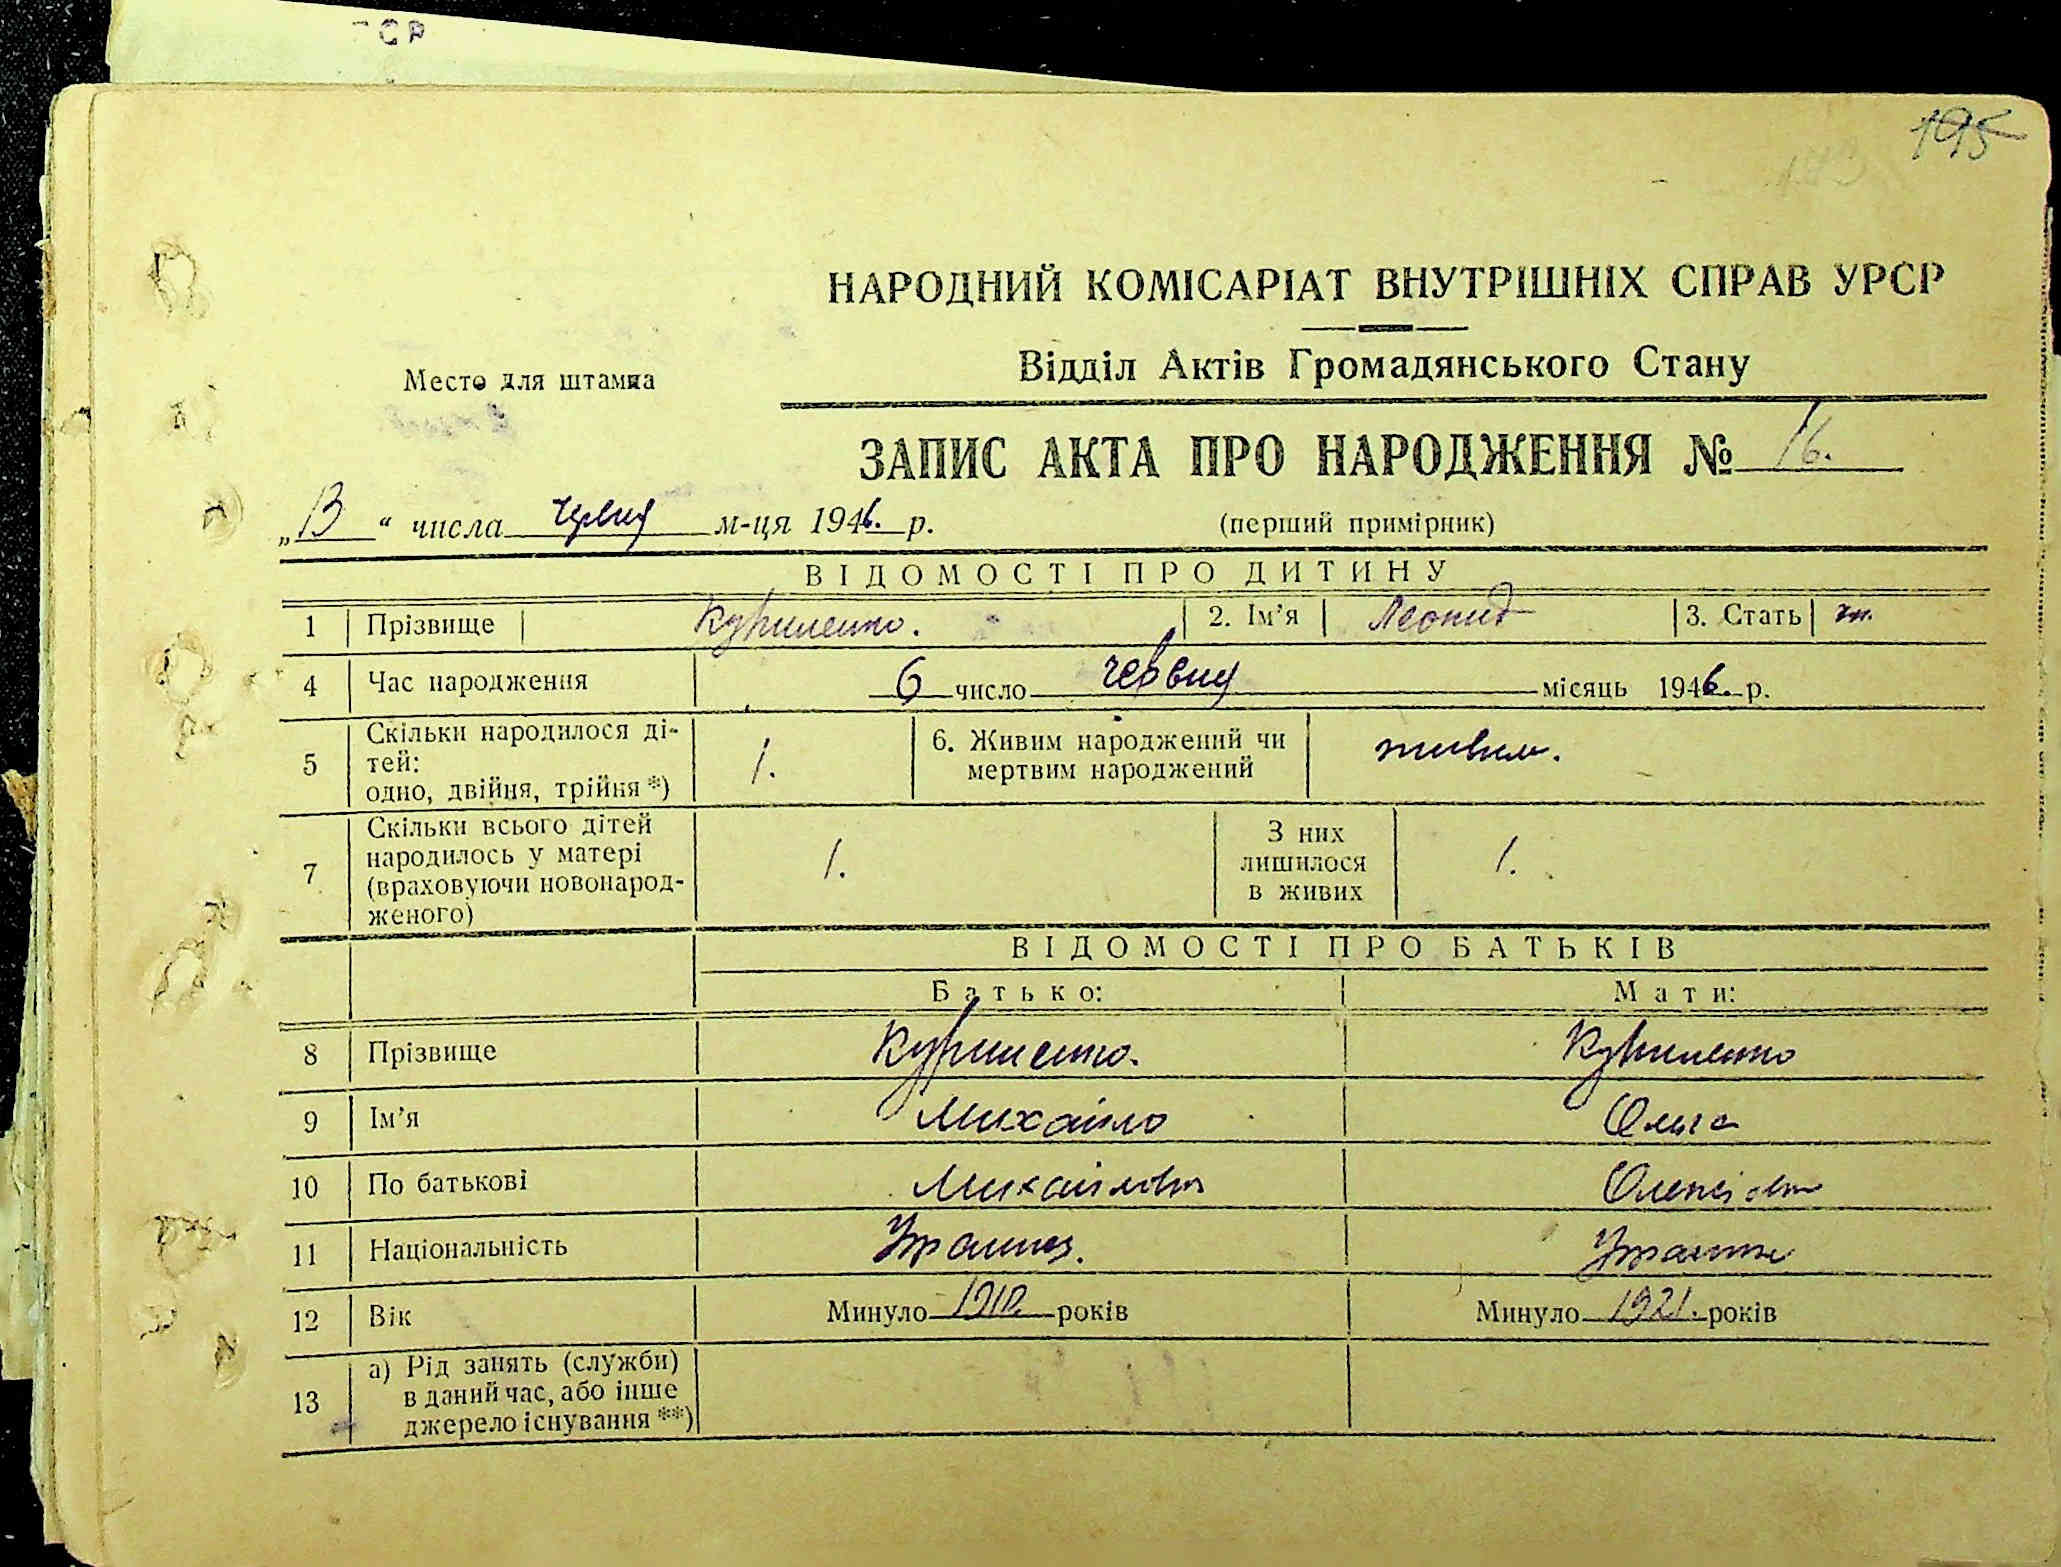 СР
195
НАРОДНИЙ КОМІСАРІАТ ВНУТРІШНІХ СПРАВ УРСР
Відділ Актів Громадянського Стану
Место для штампа
ЗАПИС АКТА ПРО НАРОДЖЕННЯ № 16.
„13“ числа червня м-ця 1946. р. (перший примірник)
ВІДОМОСТІ ПРО ДИТИНУ
1 Прізвище Куриленко. 2. Ім’я Леонид 3. Стать чл.
4 Час народження 6 число червня місяць 1946. р.
5 Скільки народилося ді-
тей:
одно, двійня, трійня *) 1. 6. Живим народжений чи
мертвим народжений живим.
7 Скільки всього дітей
народилось у матері
(враховуючи новонарод-
женого) 1. З них
лишилося
в живих 1.
ВІДОМОСТІ ПРО БАТЬКІВ
Батько: Мати:
8 Прізвище Куриленко. Куриленко
9 Ім’я Михайло Ольга
10 По батькові Михайлович Олексіївна
11 Національність Українец. Українка
12 Вік Минуло 1910. років Минуло 1921. років
13 а) Рід занять (служби)
в даний час, або інше
джерело існування **)